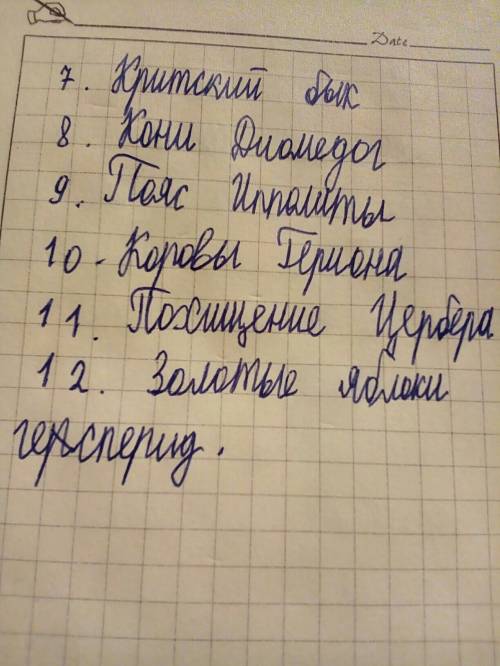 Date
7. Критский бык
8. Кони Диомедог
9. Пояс Ипполиты
10- Коровы Гериона
11. Похищение Цербера
12. Золотые яблоки
герсперид.